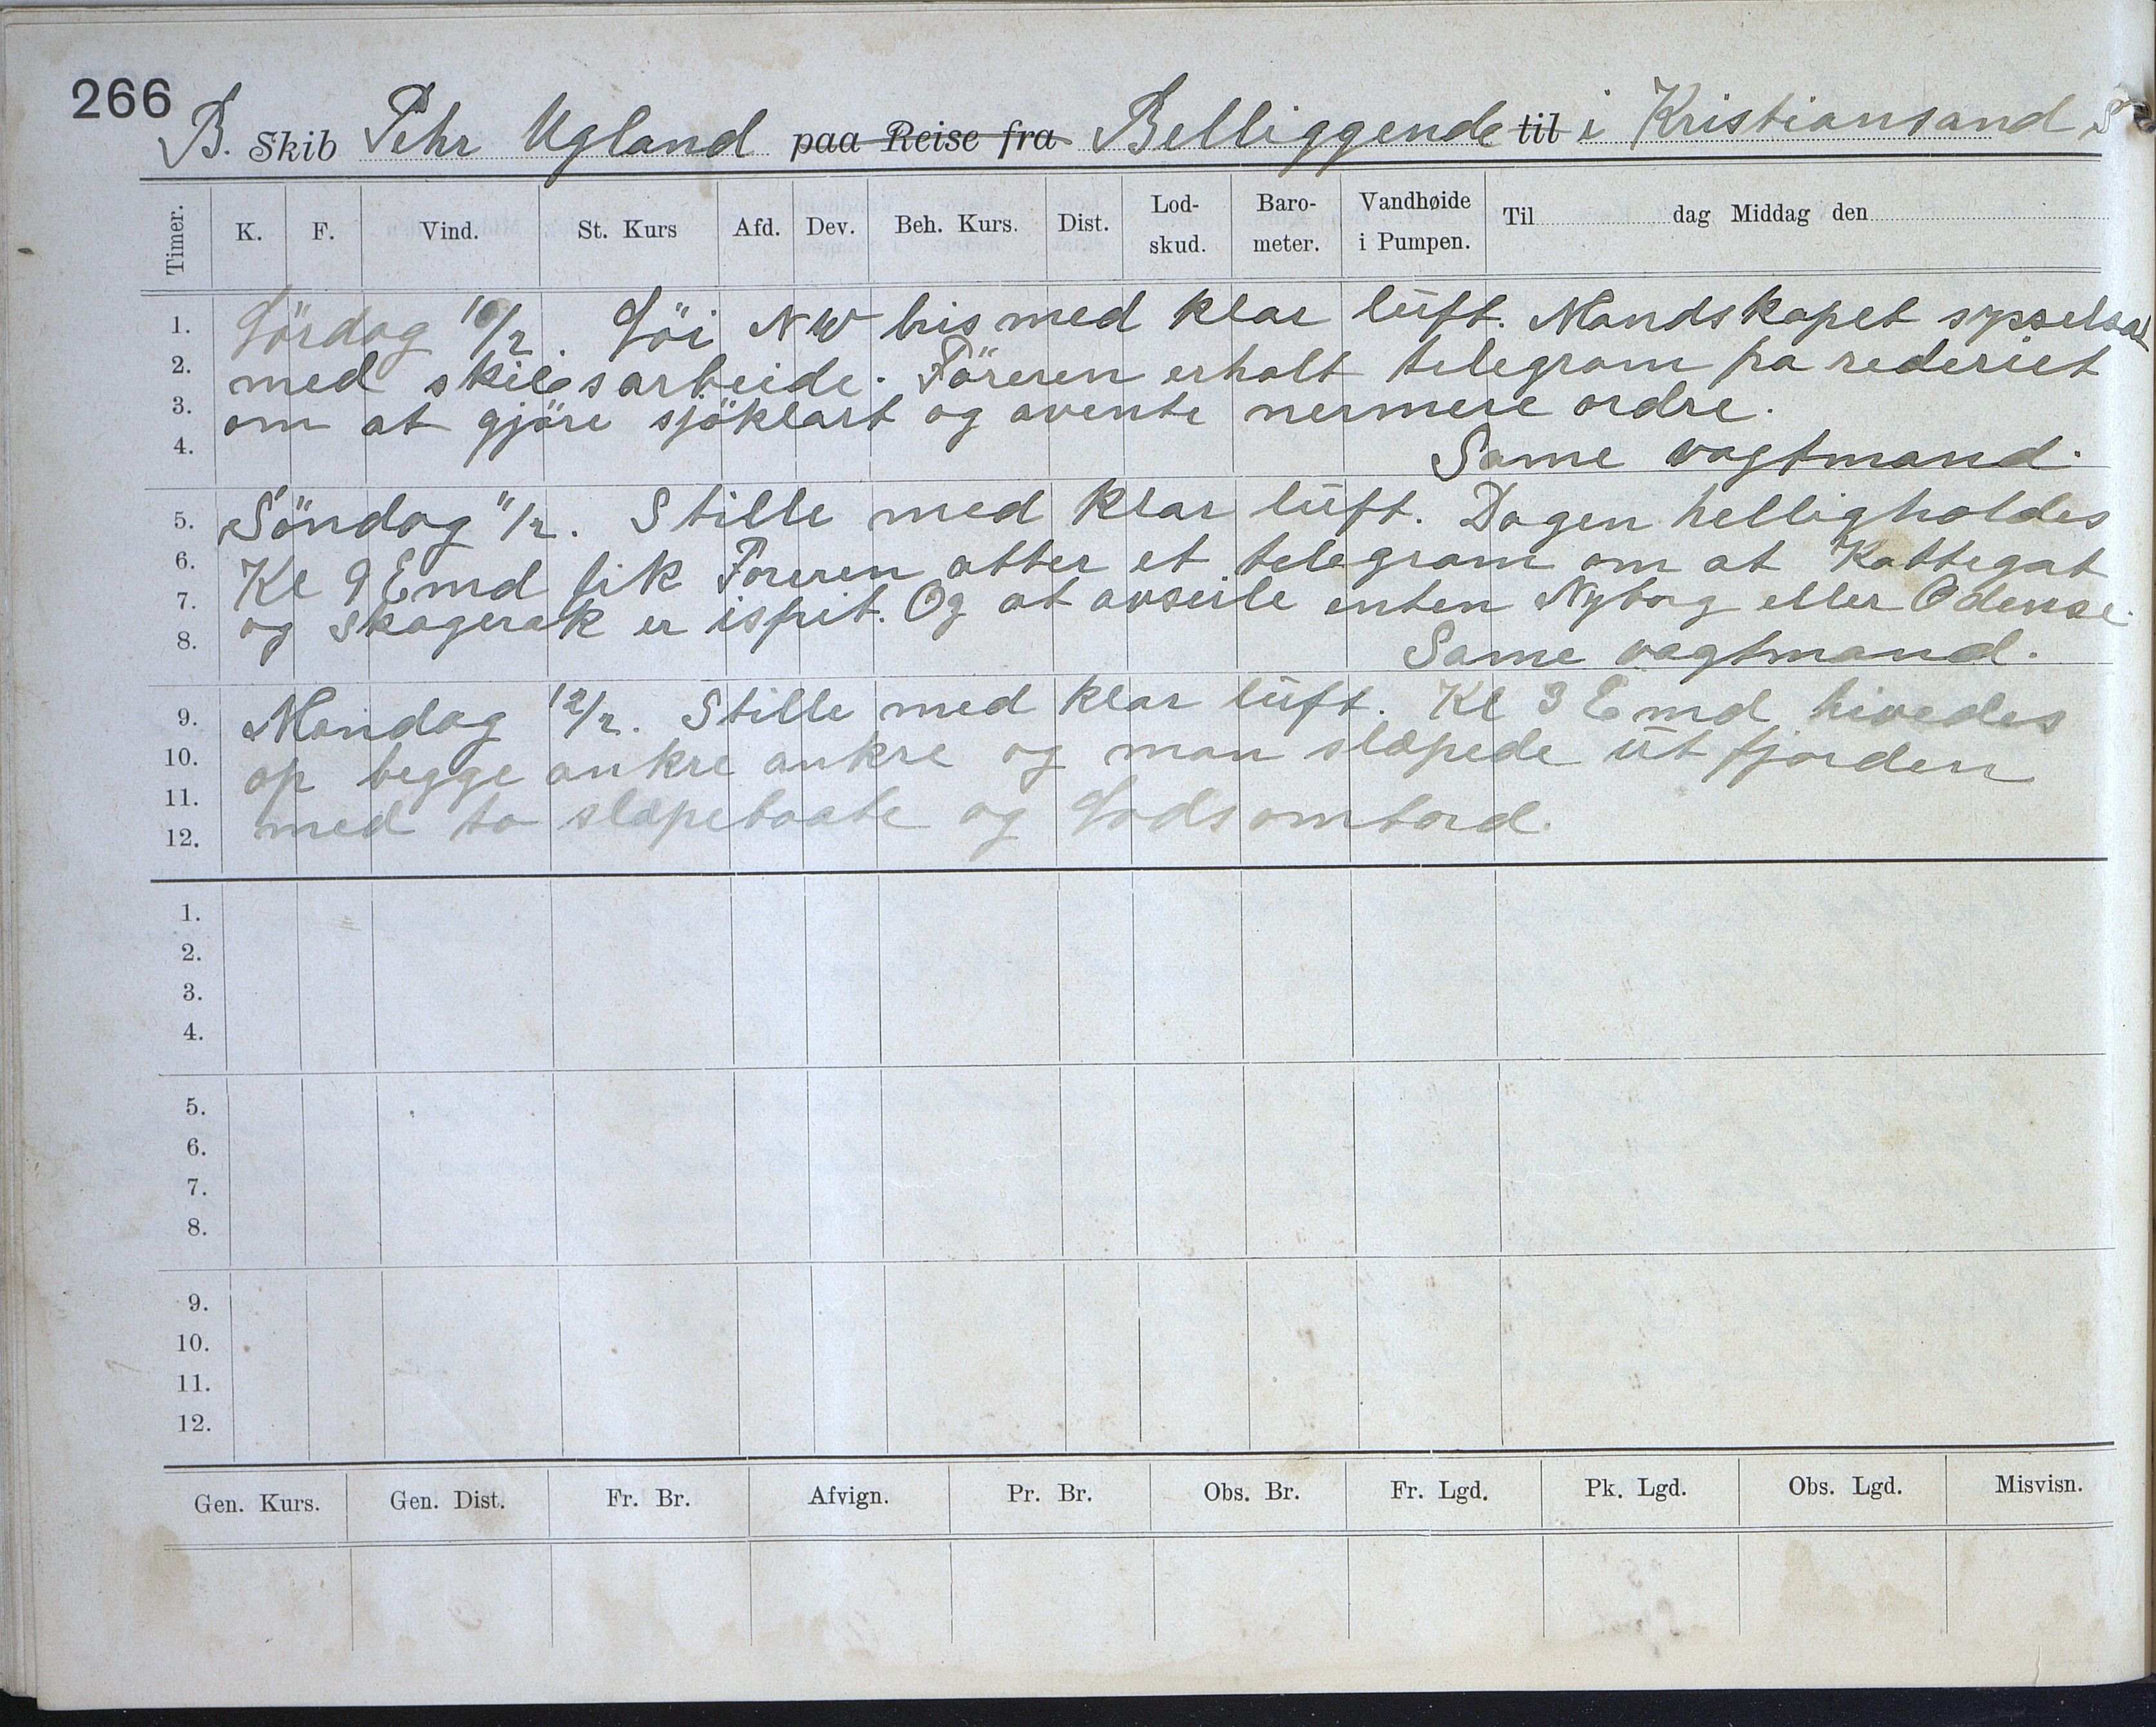 266
B. Skib Pehr Ugland paa Reise fra Belliggende til i Kristiansand S
Timer. K. F. Vind. St. Kurs Afd. Dev. Beh. Kurs. Dist. Lod-skud. Baro-meter. Vandhøide i Pumpen. Til dag Middag den
1. Lördag 10/2. Löi NW bris med klar lüft. Mandskapet sysselsat
2. med skibsarbeide. Föreren erholt telegram fra rederiet
3. om at gjöre sjöklart og avente nermere ordre.
4. Same vagtmand.
5. Söndag 11/2. Stille med klar lüft. Dagen helligholdes
6. Kl 9 Emd fik Föreren atter et telegram om at Kattegat
7. og Skagerak er isfrit. Og at avseile enten Nyborg eller Odense.
8. Same vagtmand.
9. Mandag 12/2. Stille med klar lüft. Kl 3 Emd hivedes
10. op begge ankre ankre og man slæpede üt fjorden
11. med to slæpebaate og Lods ombord.
12.
1.
2.
3.
4.
5.
6.
7.
8.
9.
10.
11.
12.
Gen. Kurs. Gen. Dist. Fr. Br. Afvign. Pr. Br. Obs. Br. Fr. Lgd. Pk. Lgd. Obs. Lgd. Misvisn.